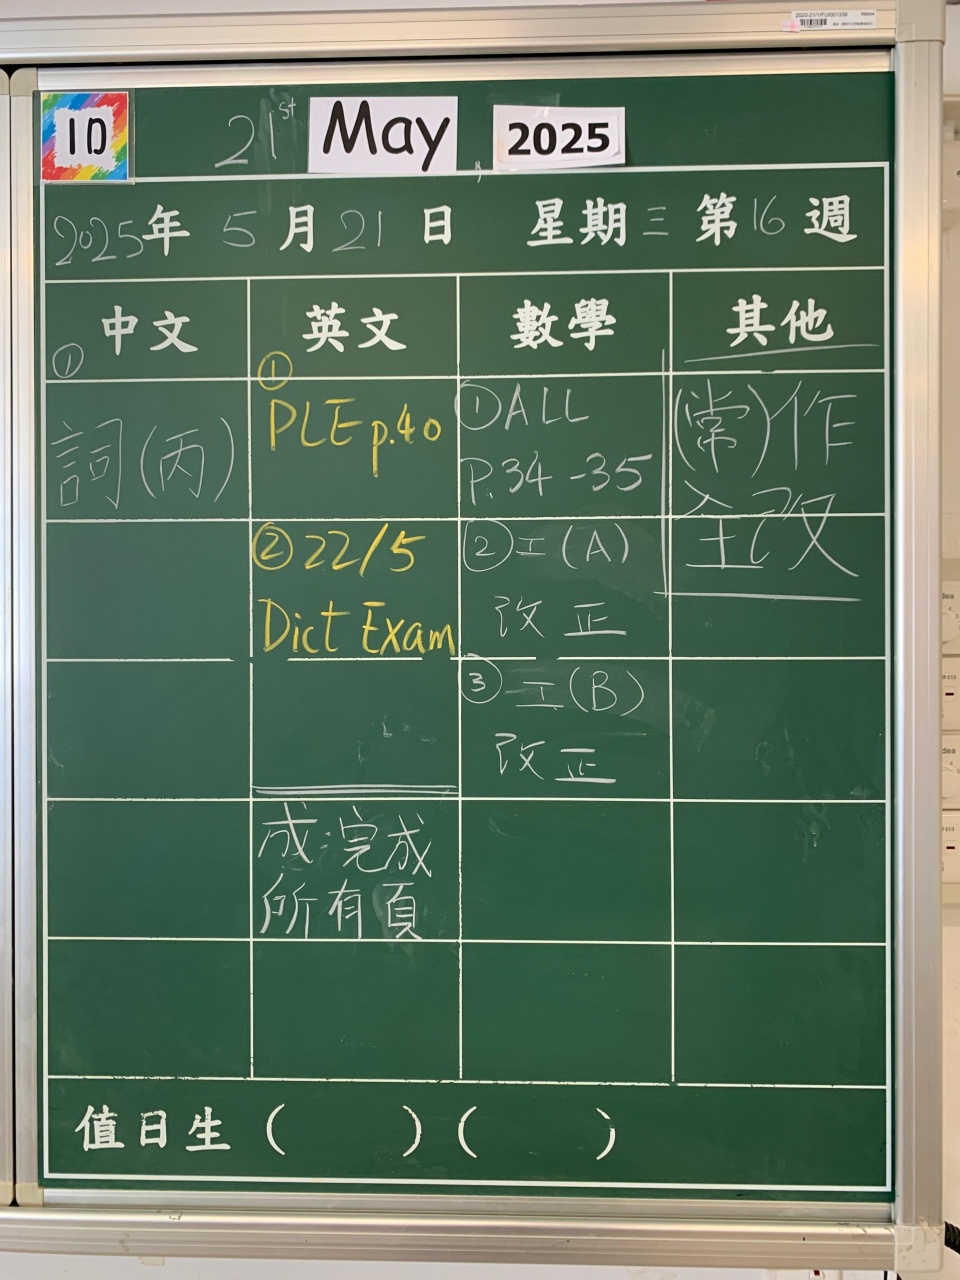 2020-21/1/FU/001239
1D
21st May 2025
2025年 5月21日 星期三 第16週
中文
英文
數學
其他
①
詞(丙)
①
PLE p.40
② 22/5
Dict Exam
成:完成
所有頁
① ALL
P.34-35
② 工(A)
改正
③ 工(B)
改正
(常)作
全改
值日生 ( ) ( )